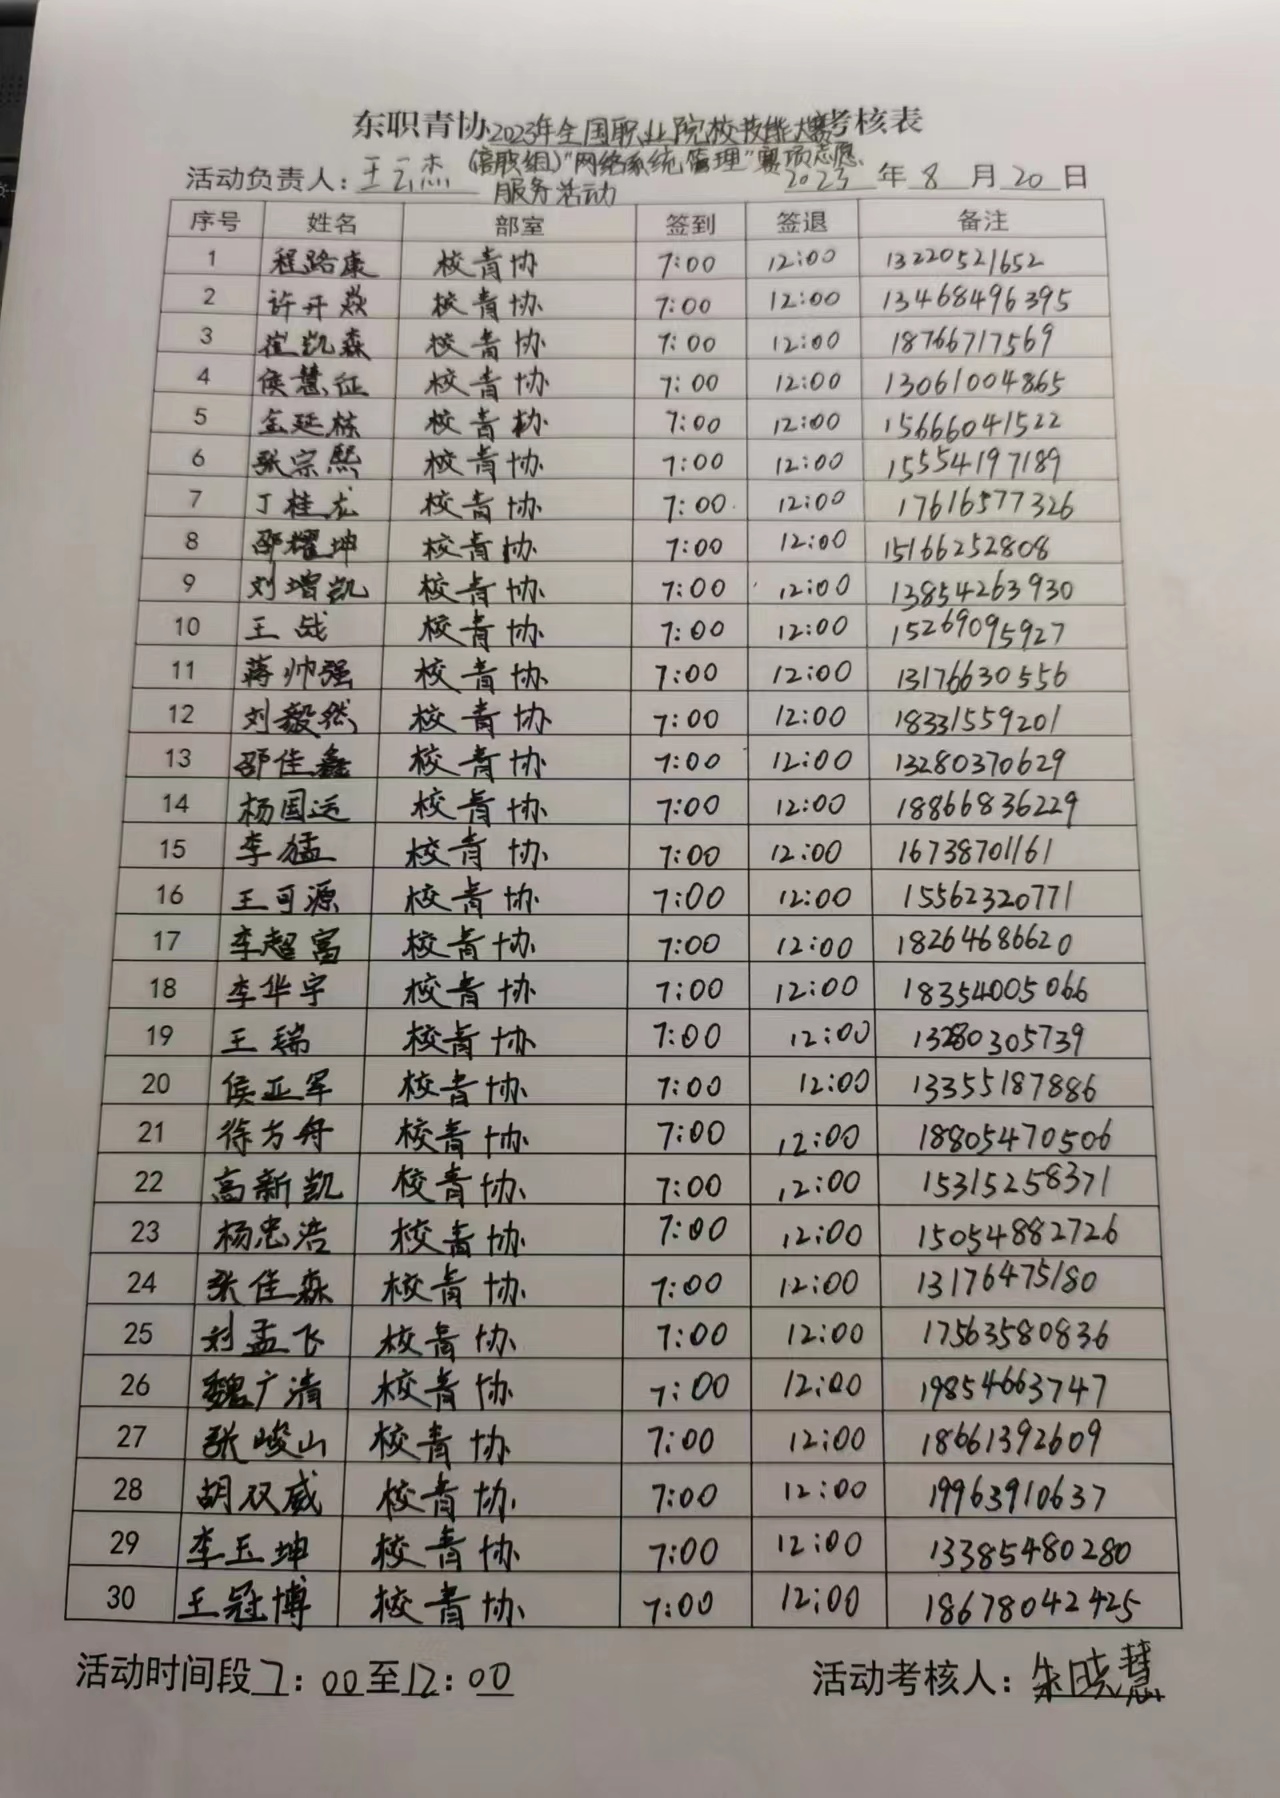 东职青协2023年全国职业院校技能大赛考核表
(高职组)"网络系统管理"赛项志愿
服务活动
活动负责人：王云杰 2023 年 8 月 20 日
序号 姓名 部室 签到 签退 备注
1 程路康 校青协 7:00 12:00 13220521652
2 许开焱 校青协 7:00 12:00 13468496395
3 崔凯森 校青协 7:00 12:00 18766717569
4 侯慧征 校青协 7:00 12:00 13061004865
5 金廷栋 校青协 7:00 12:00 15666041522
6 张宗熙 校青协 7:00 12:00 15554197189
7 丁桂龙 校青协 7:00 12:00 17616577326
8 邵耀坤 校青协 7:00 12:00 15166252808
9 刘增凯 校青协 7:00 12:00 13854263930
10 王战 校青协 7:00 12:00 15269095927
11 蒋帅强 校青协 7:00 12:00 13176630556
12 刘毅然 校青协 7:00 12:00 18331559201
13 邵佳鑫 校青协 7:00 12:00 13280370629
14 杨国运 校青协 7:00 12:00 18866836229
15 李猛 校青协 7:00 12:00 16738701161
16 王可源 校青协 7:00 12:00 15562320771
17 李超富 校青协 7:00 12:00 18264686620
18 李华宇 校青协 7:00 12:00 18354005066
19 王瑞 校青协 7:00 12:00 13280305739
20 侯亚军 校青协 7:00 12:00 13355187886
21 徐方舟 校青协 7:00 12:00 18805470506
22 高新凯 校青协 7:00 12:00 15315258371
23 杨忠浩 校青协 7:00 12:00 15054882726
24 张佳森 校青协 7:00 12:00 13176475180
25 刘孟飞 校青协 7:00 12:00 17563580836
26 魏广清 校青协 7:00 12:00 19854663747
27 张峻山 校青协 7:00 12:00 18661392609
28 胡双威 校青协 7:00 12:00 19963910637
29 李玉坤 校青协 7:00 12:00 13385480280
30 王冠博 校青协 7:00 12:00 18678042425
活动时间段7：00至12：00 活动考核人：朱晓慧